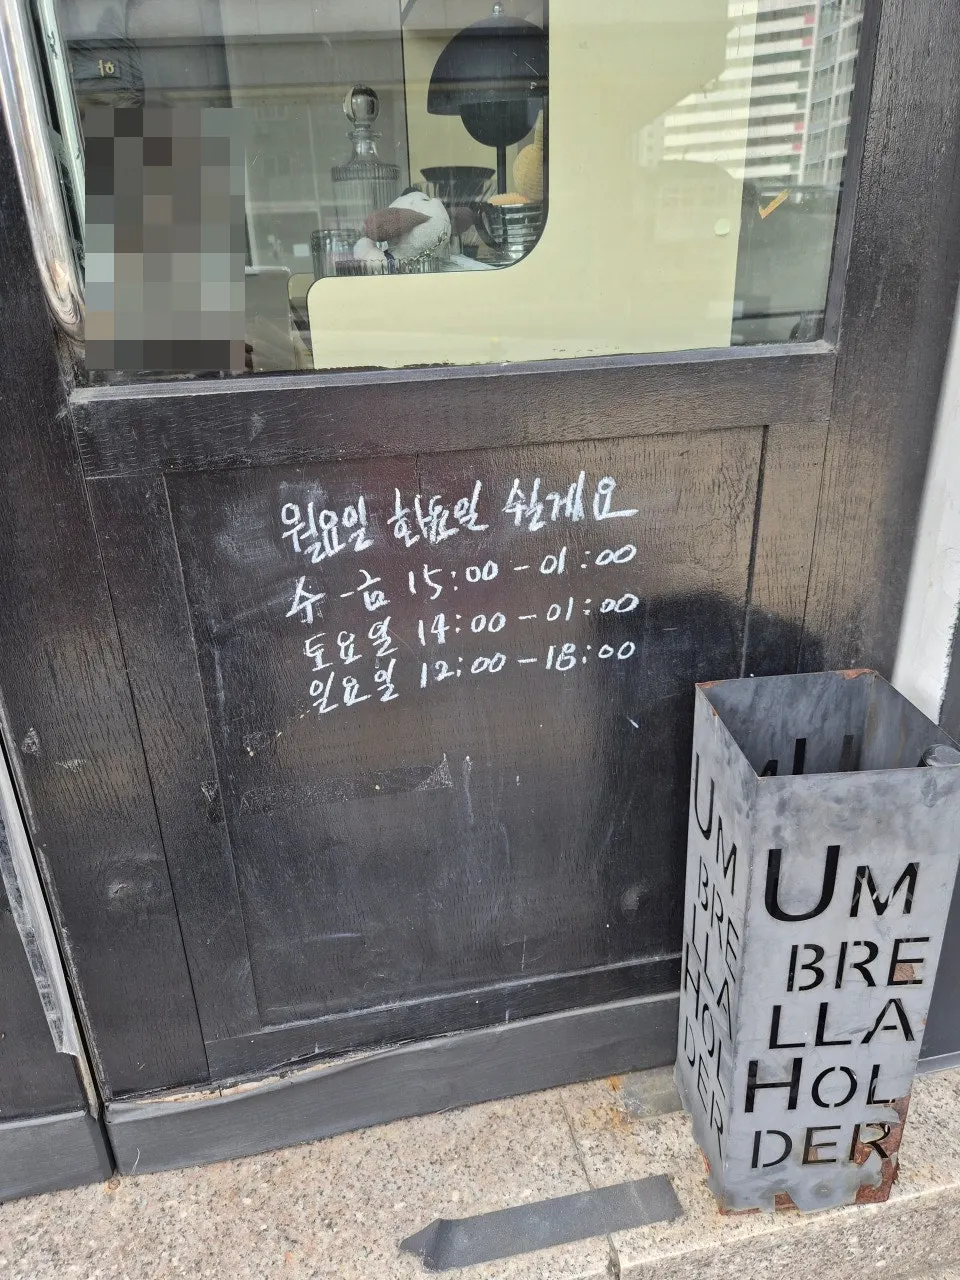 월요일 화요일 쉴게요
수-금 15:00-01:00
토요일 14:00-01:00
일요일 12:00-18:00
UM
BRE
LLA
HOL
DER
UM
BRE
LLA
HOL
DER